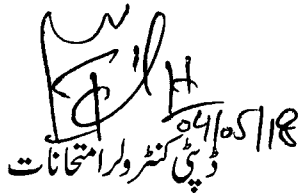 04/05/18
ڈپٹی کنٹرولر امتحانات